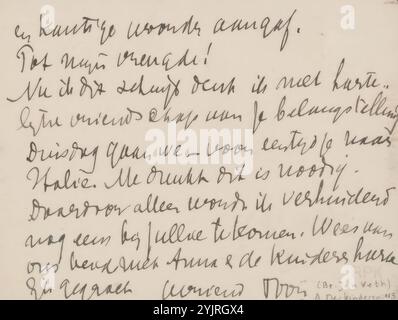 en kantige woorden aangaf.
Tot mijn vreugde!
Nu ik dit schrijf denk ik met harte-
lijke vriendschap aan je belangstelling
Dinsdag gaan we voor eenigje naar
Italië. Me dunkt dit is noodig.
Daardoor alleen word ik verhinderd
nog eens bij jullie te komen. Wees van
ons bend met Anna & de kinderen harte
zijn gegroet vriend
alamy
alamy
Image ID: 2YJRGX4
www.alamy.com